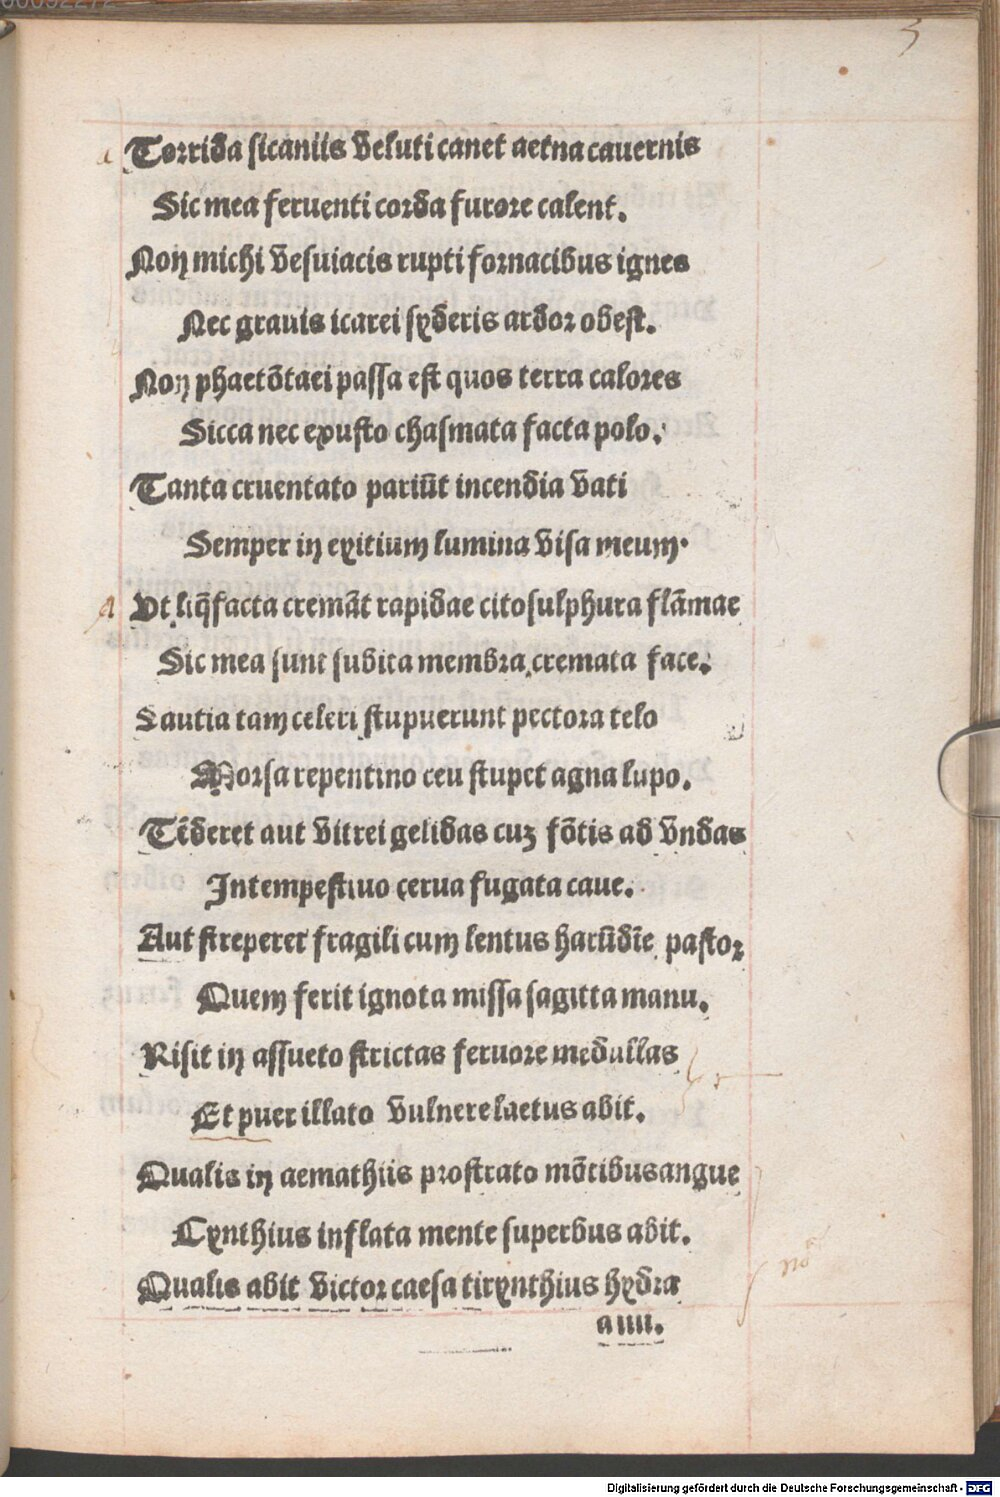 5
a Torrida sicaniis veluti canet aetna cauernis
Sic mea feruenti corda furore calent.
Non michi vesuiacis rupti fornacibus ignes
Nec grauis icarei syderis ardor obest.
Non phaetõtaei passa est quos terra calores
Sicca nec exusto chasmata facta polo.
Tanta cruentato pariũt incendia vati
Semper in exitium lumina visa meum.
a Vt liq̃facta cremãt rapidae cito sulphura flãmae
Sic mea sunt subita membra cremata face.
Sautia tam celeri stupuerunt pectora telo
Morsa repentino ceu stupet agna lupo.
Tẽderet aut vitrei gelidas cuz fõtis ad vndas
Intempestiuo cerua fugata caue.
Aut streperet fragili cum lentus harũdĩe pastor
Quem ferit ignota missa sagitta manu.
Risit in assueto strictas feruore medullas
Et puer illato vulnere laetus abit.
Qualis in aemathiis prostrato mõtibus angue
Cynthius inflata mente superbus abit.
Qualis abit victor caesa tirynthius hydra
Digitalisierung gefördert durch die Deutsche Forschungsgemeinschaft - DFG